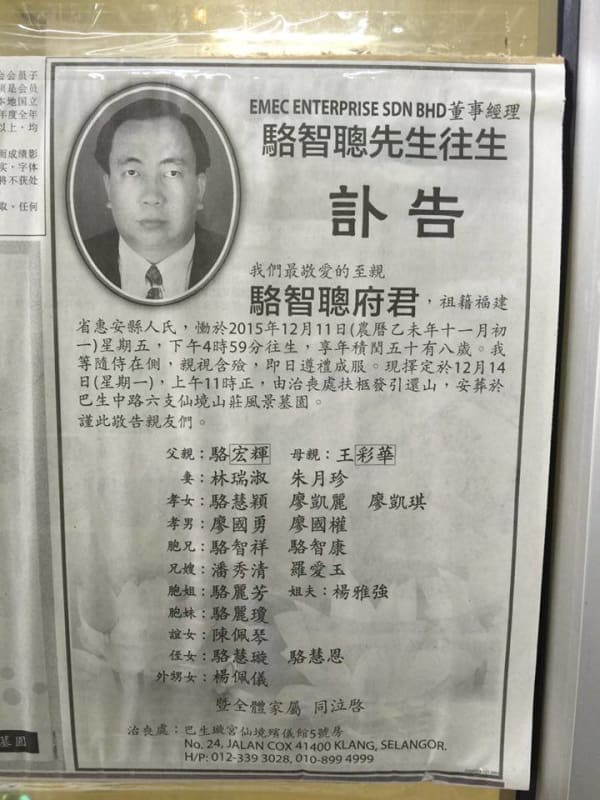 會會員子
須是會員
本地国立
年度全年
以上，均
而成績影
实，字体
将不获处
取，任何
EMEC ENTERPRISE SDN BHD董事經理
駱智聰先生往生
訃告
我們最敬愛的至親
駱智聰府君，祖籍福建
省惠安縣人民，慟於2015年12月11日(農曆乙未年十一月初
一)星期五，下午4時59分往生，享年積閏五十有八歲。我
等隨侍在側，親視含殮，即日遵禮成服。現擇定於12月14
日(星期一)，上午11時正，由治喪處扶柩發引還山，安葬於
巴生中路六支仙境山莊風景墓園。
謹此敬告親友們。
父親：駱宏輝 母親：王彩華
妻：林瑞淑 朱月珍
孝女：駱慧穎 廖凱麗 廖凱琪
孝男：廖國勇 廖國權
胞兄：駱智祥 駱智康
兄嫂：潘秀清 羅愛玉
胞姐：駱麗芳 姐夫：楊雅強
胞妹：駱麗瓊
誼女：陳佩琴
侄女：駱慧璇 駱慧恩
外甥女：楊佩儀
暨全體家屬 同泣啓
治喪處：巴生璇宮仙境殯儀館5號房
No. 24, JALAN COX 41400 KLANG, SELANGOR.
H/P: 012-339 3028, 010-899 4999
墓園